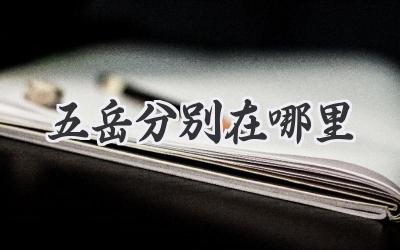 五岳分别在哪里